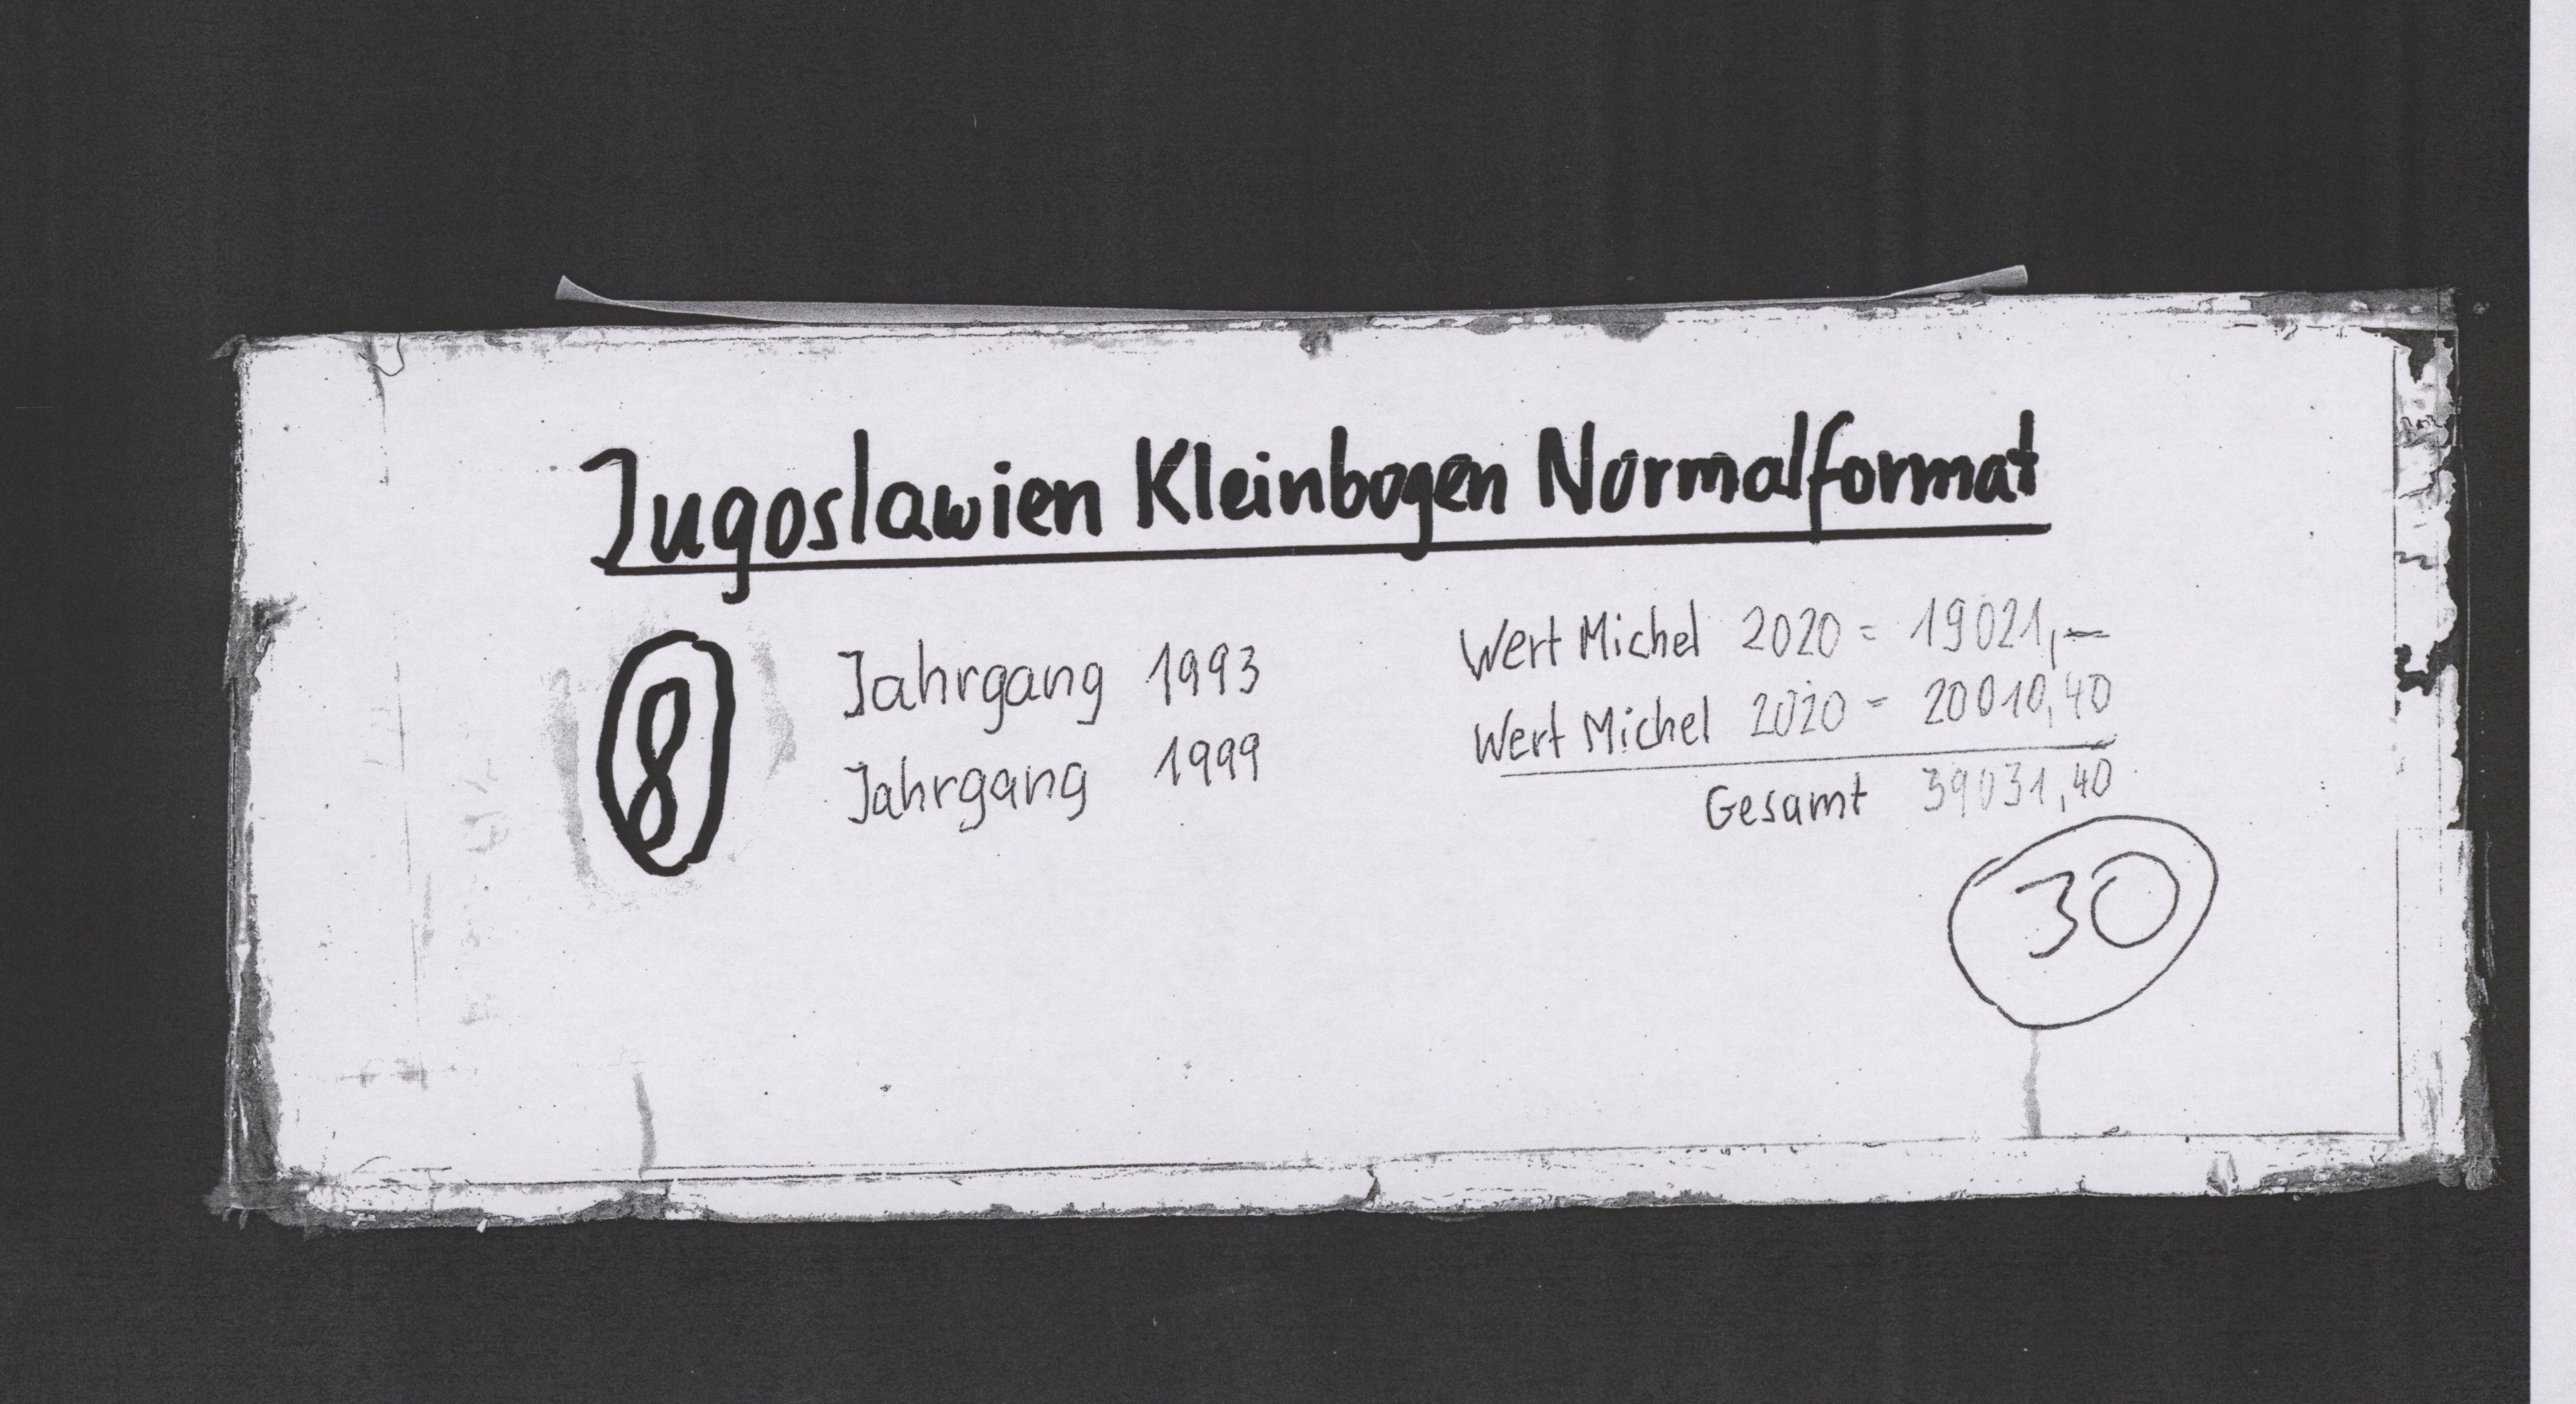 Jugoslawien Kleinbogen Normalformat
8
Jahrgang 1993 Wert Michel 2020 = 19021,—
Jahrgang 1999 Wert Michel 2020 = 20010,40
Gesamt 39031,40
30